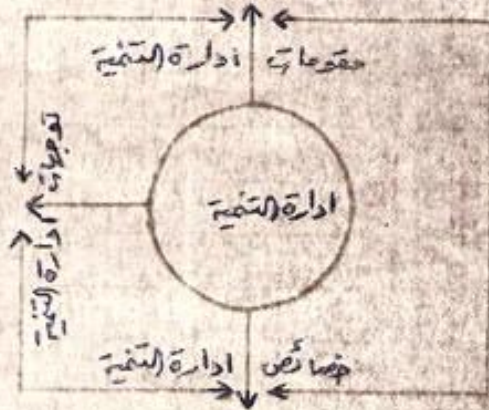 مقومات ادارة التنمية
توجهات ادارة التنمية
ادارة التنمية
خصائص ادارة التنمية